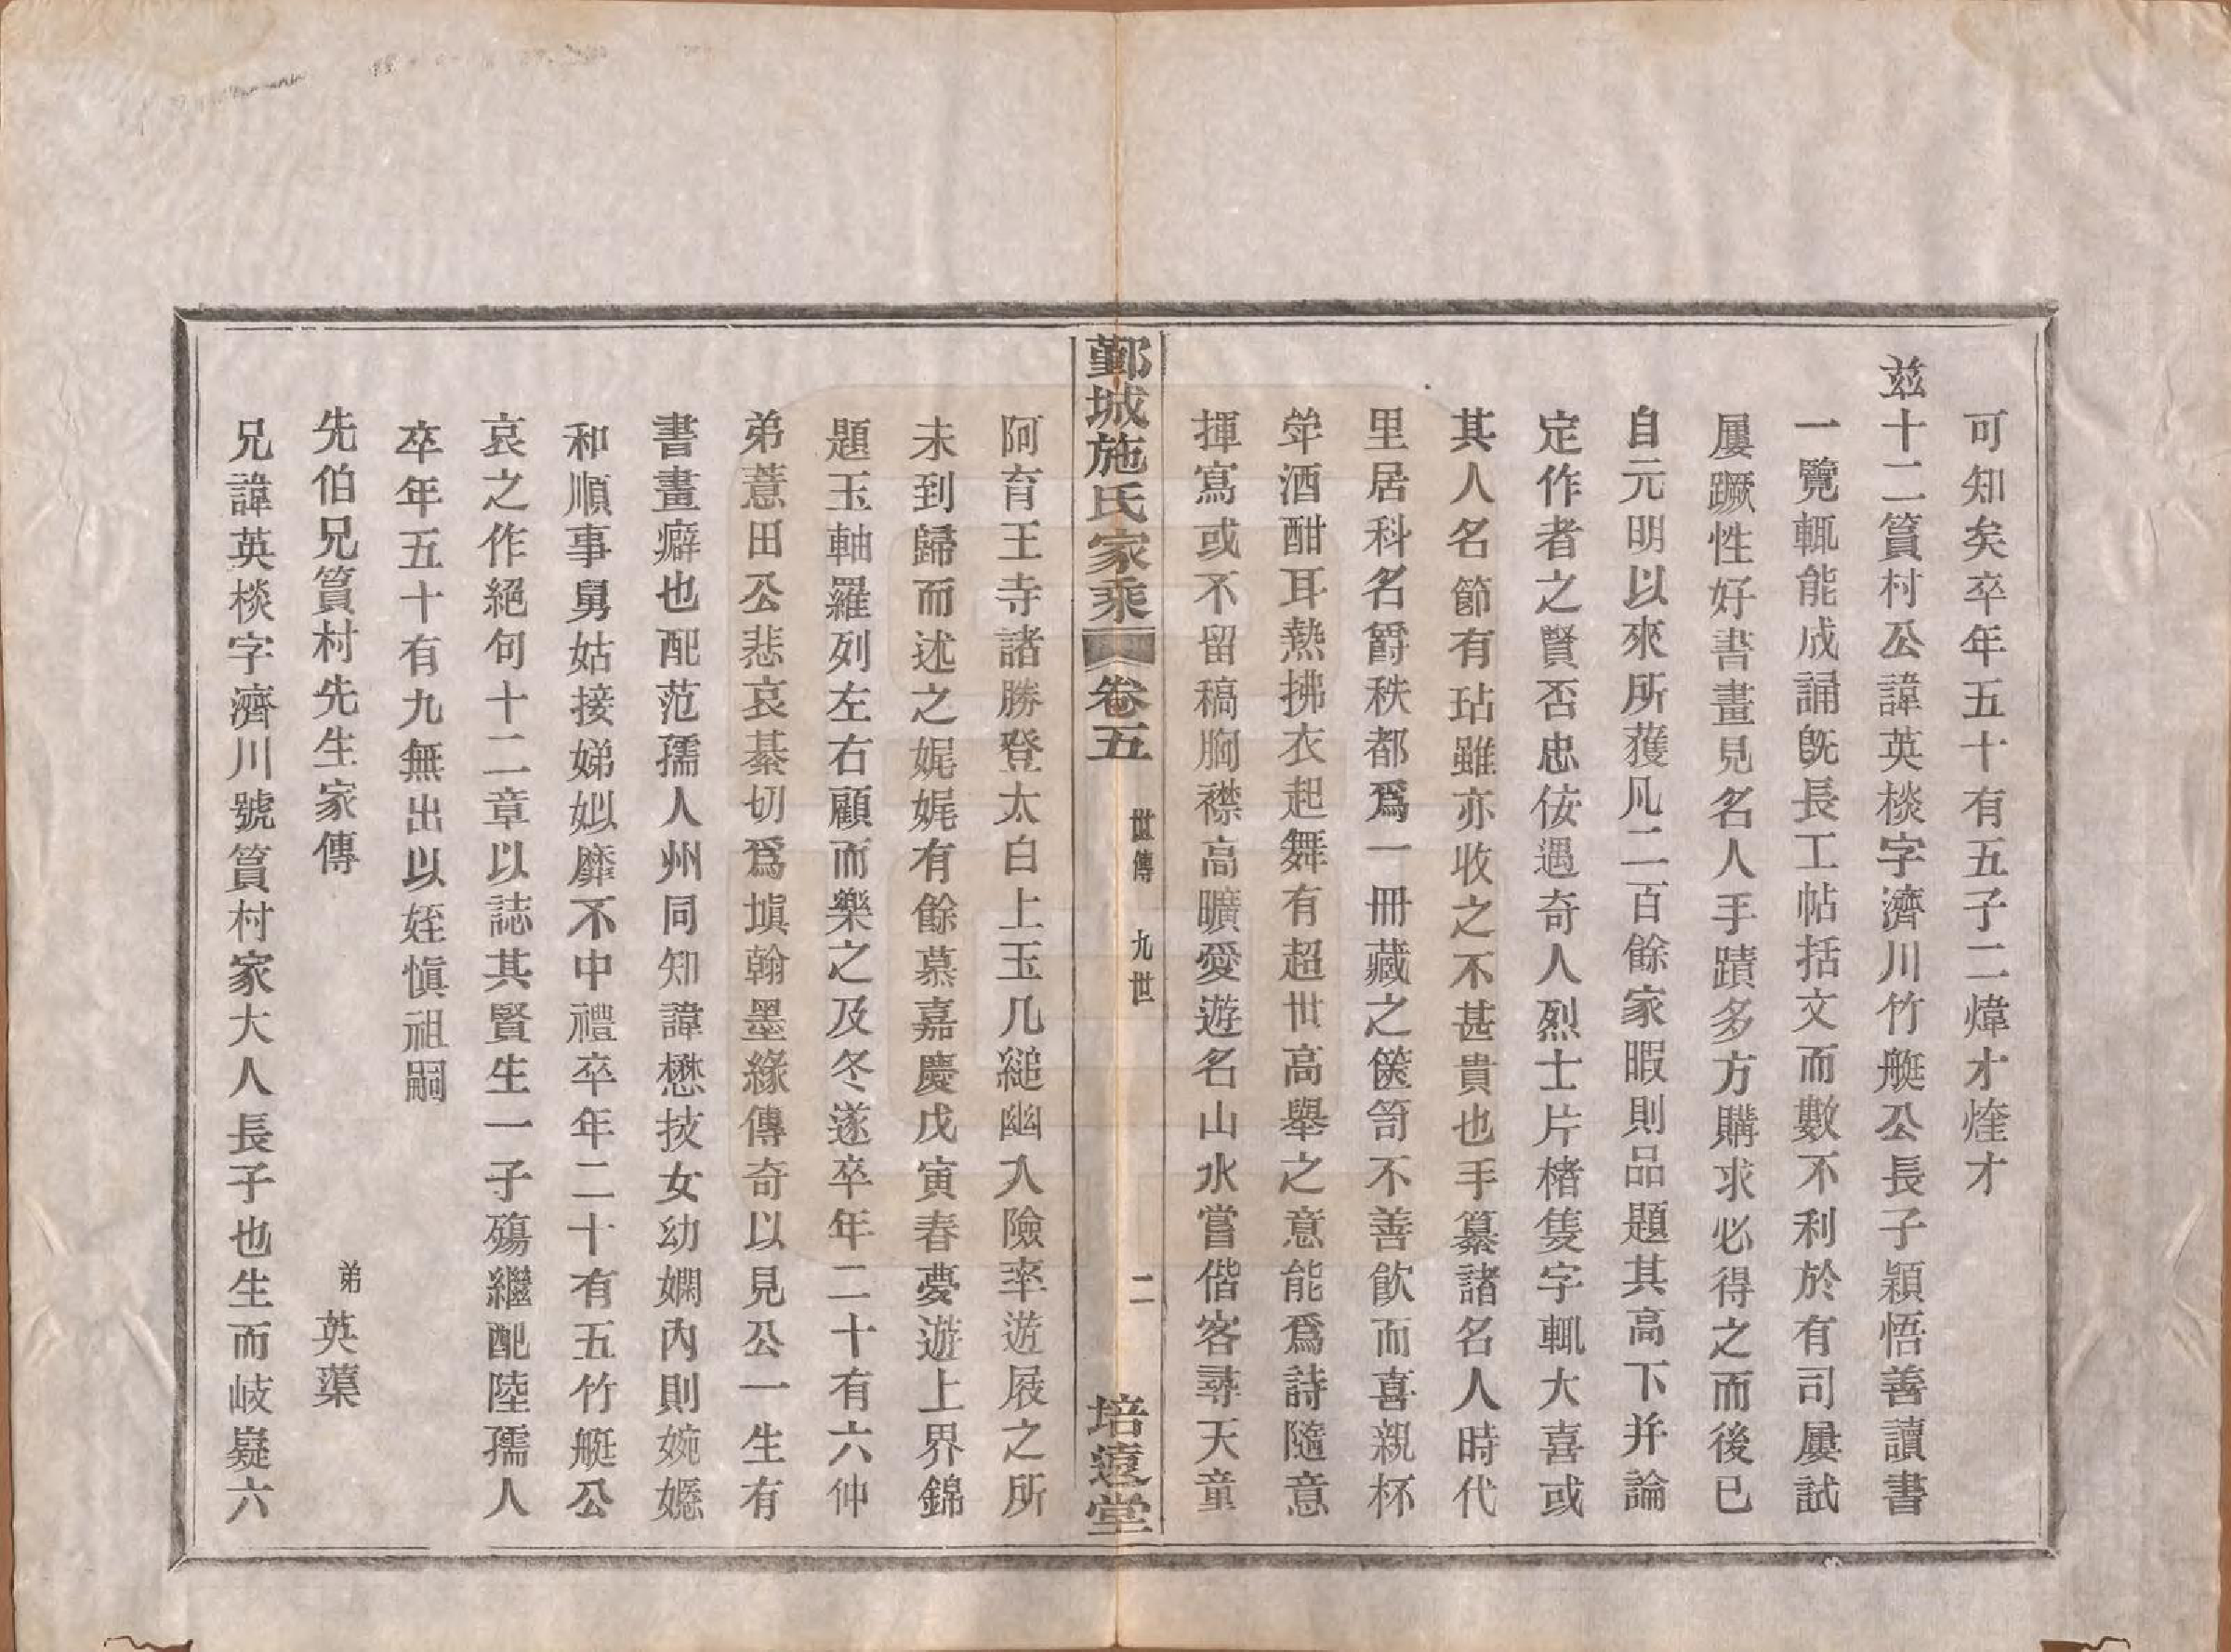 可知矣卒年五十有五子二煒才煃才
兹十二篔村公諱英棪字濟川竹艇公長子穎悟善讀書
一覽輒能成誦旣長工帖括文而數不利於有司屢試
屢蹶性好書畫見名人手蹟多方購求必得之而後已
自元明以來所獲凡二百餘家暇則品題其高下并論
定作者之賢否忠侫遇奇人烈士片楮隻字輒大喜或
其人名節有玷雖亦收之不甚貴也手纂諸名人時代
里居科名爵秩都爲一冊藏之篋笥不善飮而喜親杯
斚酒酣耳熱拂衣起舞有超世高舉之意能爲詩隨意
揮寫或不留稿胸襟高曠愛遊名山水嘗偕客尋天童
鄞城施氏家乘 卷五 世傳 九世 二 培遠堂
阿育王寺諸勝登太白上玉几縋幽入險率遊屐之所
未到歸而述之娓娓有餘慕嘉慶戊寅春夢遊上界錦
題玉軸羅列左右顧而樂之及冬遂卒年二十有六仲
弟薏田公悲哀綦切爲塡翰墨緣傳奇以見公一生有
書畫癖也配范孺人州同知諱懋技女幼嫻內則婉嫕
和順事舅姑接娣姒靡不中禮卒年二十有五竹艇公
哀之作絕句十二章以誌其賢生一子殤繼配陸孺人
卒年五十有九無出以姪愼祖嗣
先伯兄篔村先生家傳 弟英蕖
兄諱英棪字濟川號篔村家大人長子也生而岐嶷六